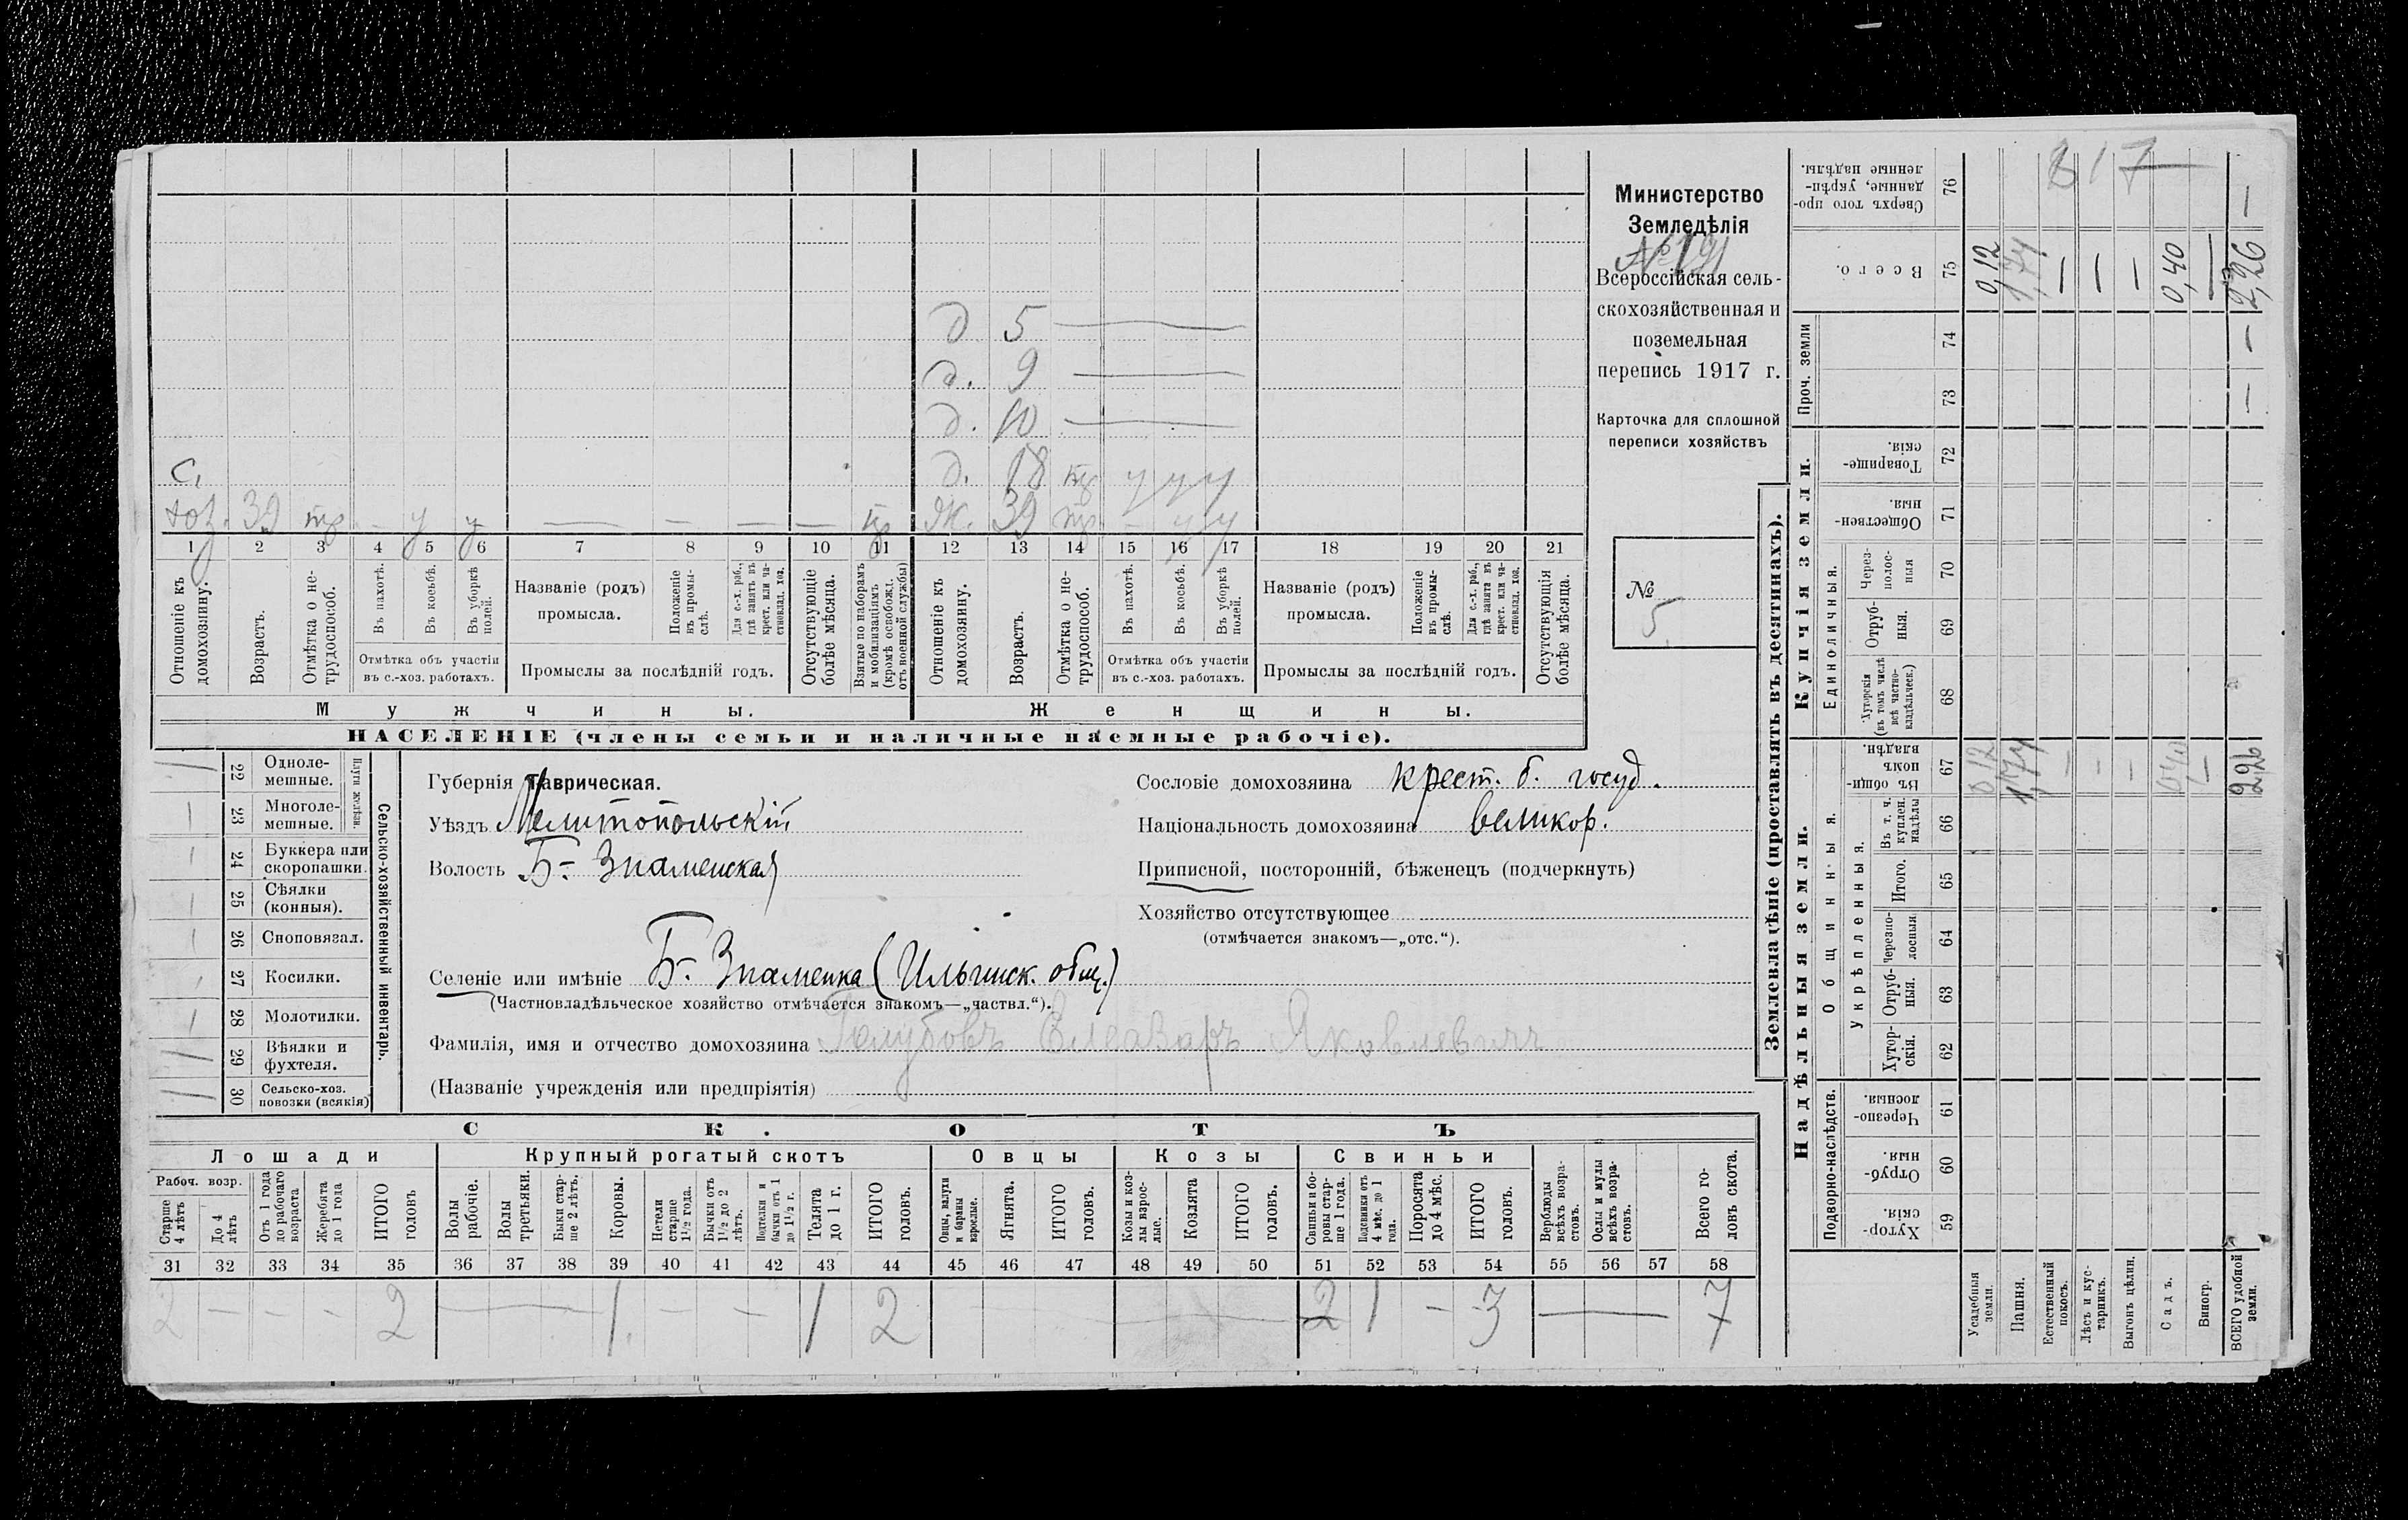 Министерство
Земледѣлія
№ 191
Всероссійская сель-
скохозяйственная и
поземельная
перепись 1917 г.
Карточка для сплошной
переписи хозяйствъ
№
5
д 5 —
д. 9 —
д. 10 —
с. д. 18 у у у
хоз. 39 — у у — — — — ж. 39 — у у
1 2 3 4 5 6 7 8 9 10 11 12 13 14 15 16 17 18 19 20 21
Отношеніе къ домохозяину.
Возрастъ.
Отмѣтка о не-
трудоспособ.
Въ пахотѣ.
Въ косьбѣ.
Въ уборкѣ полей.
Отмѣтка объ участіи
въ с.-хоз. работахъ.
Названіе (родъ)
промысла.
Положеніе въ промы-
слѣ.
Для с.-х. раб.,
гдѣ занятъ въ
крест. или ча-
стновлад. хоз.
Промыслы за послѣдній годъ.
Отсутствующіе
болѣе мѣсяца.
Взятые по наборамъ
и мобилизаціямъ
(кромѣ освобожд.
отъ военной службы)
Отношеніе къ
домохозяину.
Возрастъ.
Отмѣтка о не-
трудоспособ.
Въ пахотѣ.
Въ косьбѣ.
Въ уборкѣ
полей.
Отмѣтка объ участіи
въ с.-хоз. работахъ.
Названіе (родъ)
промысла.
Положеніе
въ промы-
слѣ.
Для с.-х. раб.,
гдѣ занята въ
крест. или ча-
стновлад. хоз.
Промыслы за послѣдній годъ.
Отсутствующія
болѣе мѣсяца.
Мужчины.
Женщины.
НАСЕЛЕНІЕ (члены семьи и наличные наемные рабочіе).
Сельско-хозяйственный инвентарь.
Плуги желѣзн.
22 Одноле-
мешные.
23 Многоле-
мешные.
24 Буккера или
скоропашки.
25 Сѣялки
(конныя).
26 Сноповязал.
27 Косилки.
28 Молотилки.
29 Вѣялки и
фухтеля.
30 Сельско-хоз.
повозки (всякія)
Губернія Таврическая.
Уѣздъ Мелитопольскій
Волость Б- Знаменская
Селеніе или имѣніе Б- Знаменка (Ильинск. общ.)
(Частновладѣльческое хозяйство отмѣчается знакомъ—„частвл.“).
Фамилія, имя и отчество домохозяина Голубовъ Елеазаръ Яковлевичъ
(Названіе учрежденія или предпріятія)
Сословіе домохозяина крест. б. госуд.
Національность домохозяина великор.
Приписной, посторонній, бѣженецъ (подчеркнуть)
Хозяйство отсутствующее
(отмѣчается знакомъ—„отс.“).
СКОТЪ
Лошади
Крупный рогатый скотъ
Овцы
Козы
Свиньи
Рабоч. возр.
Старше
4 лѣтъ
До 4
лѣтъ
Отъ 1 года
до рабочаго
возраста
Жеребята
до 1 года
ИТОГО
головъ
Волы
рабочіе.
Волы
третьяки.
Быки стар-
ше 2 лѣтъ.
Коровы.
Нетели
старше
1½ года.
Бычки отъ
1½ до 2
лѣтъ.
Подтелки и
бычки отъ 1
до 1½ г.
Телята
до 1 г.
ИТОГО
головъ.
Овцы, валухи
и бараны
взрослые.
Ягнята.
ИТОГО
головъ.
Козы и коз-
лы взрос-
лые.
Козлята
ИТОГО
головъ.
Свиньи и бо-
ровы стар-
ше 1 года.
Подсвинки отъ
4 мѣс. до 1
года.
Поросята
до 4 мѣс.
ИТОГО
головъ.
Верблюды
всѣхъ возра-
стовъ.
Ослы и мулы
всѣхъ возра-
стовъ.
Всего го-
ловъ скота.
31 32 33 34 35 36 37 38 39 40 41 42 43 44 45 46 47 48 49 50 51 52 53 54 55 56 57 58
2 — — — 2 — 1. — — 1 2 — 2 1 — 3 — — 7
Землевладѣніе (проставлять въ десятинахъ).
Надѣльныя земли.
Купчія земли.
Проч. земли
Подворно-наслѣдств.
Общинныя.
Укрѣпленныя.
Единоличныя.
Сверхъ того про-
данные, укрѣп-
ленные надѣлы.
76
Всего.
75
74
73
Товарище-
скія.
72
Обществен-
ныя.
71
Через-
полос-
ныя
70
Отруб-
ныя.
69
Хуторскія
(въ томъ числѣ
всѣ частно-
владѣльческ.)
68
Въ общин-
номъ
владѣн.
67
Въ т. ч.
куплен.
надѣлы
66
Итого.
65
Черезпо-
лосныя
64
Отруб-
ныя.
63
Хутор-
скія.
62
Черезпо-
лосныя.
61
Отруб-
ныя.
60
Хутор-
скія.
59
Усадебныя
земли.
Пашня.
Естественный
покосъ.
Лѣсъ и кус-
тарникъ.
Выгонъ цѣлин.
Садъ.
Виногр.
ВСЕГО удобной
земли.
817
0,12 1,74 — — — 0,40 — 2,26
0,12 1,74 — — — 0,40 — 2,26